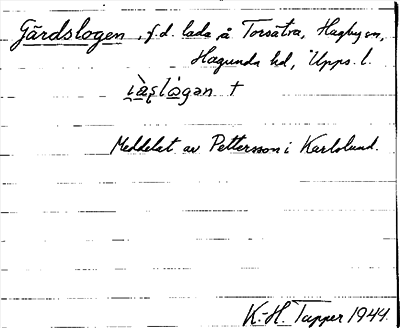 Gärdslogen, f.d. lada å Torsätra, Hagby sn,
Hagunda hd, Upps. l.
†
Meddelat av Pettersson i Karlslund.
K.-H. Tapper 1944.